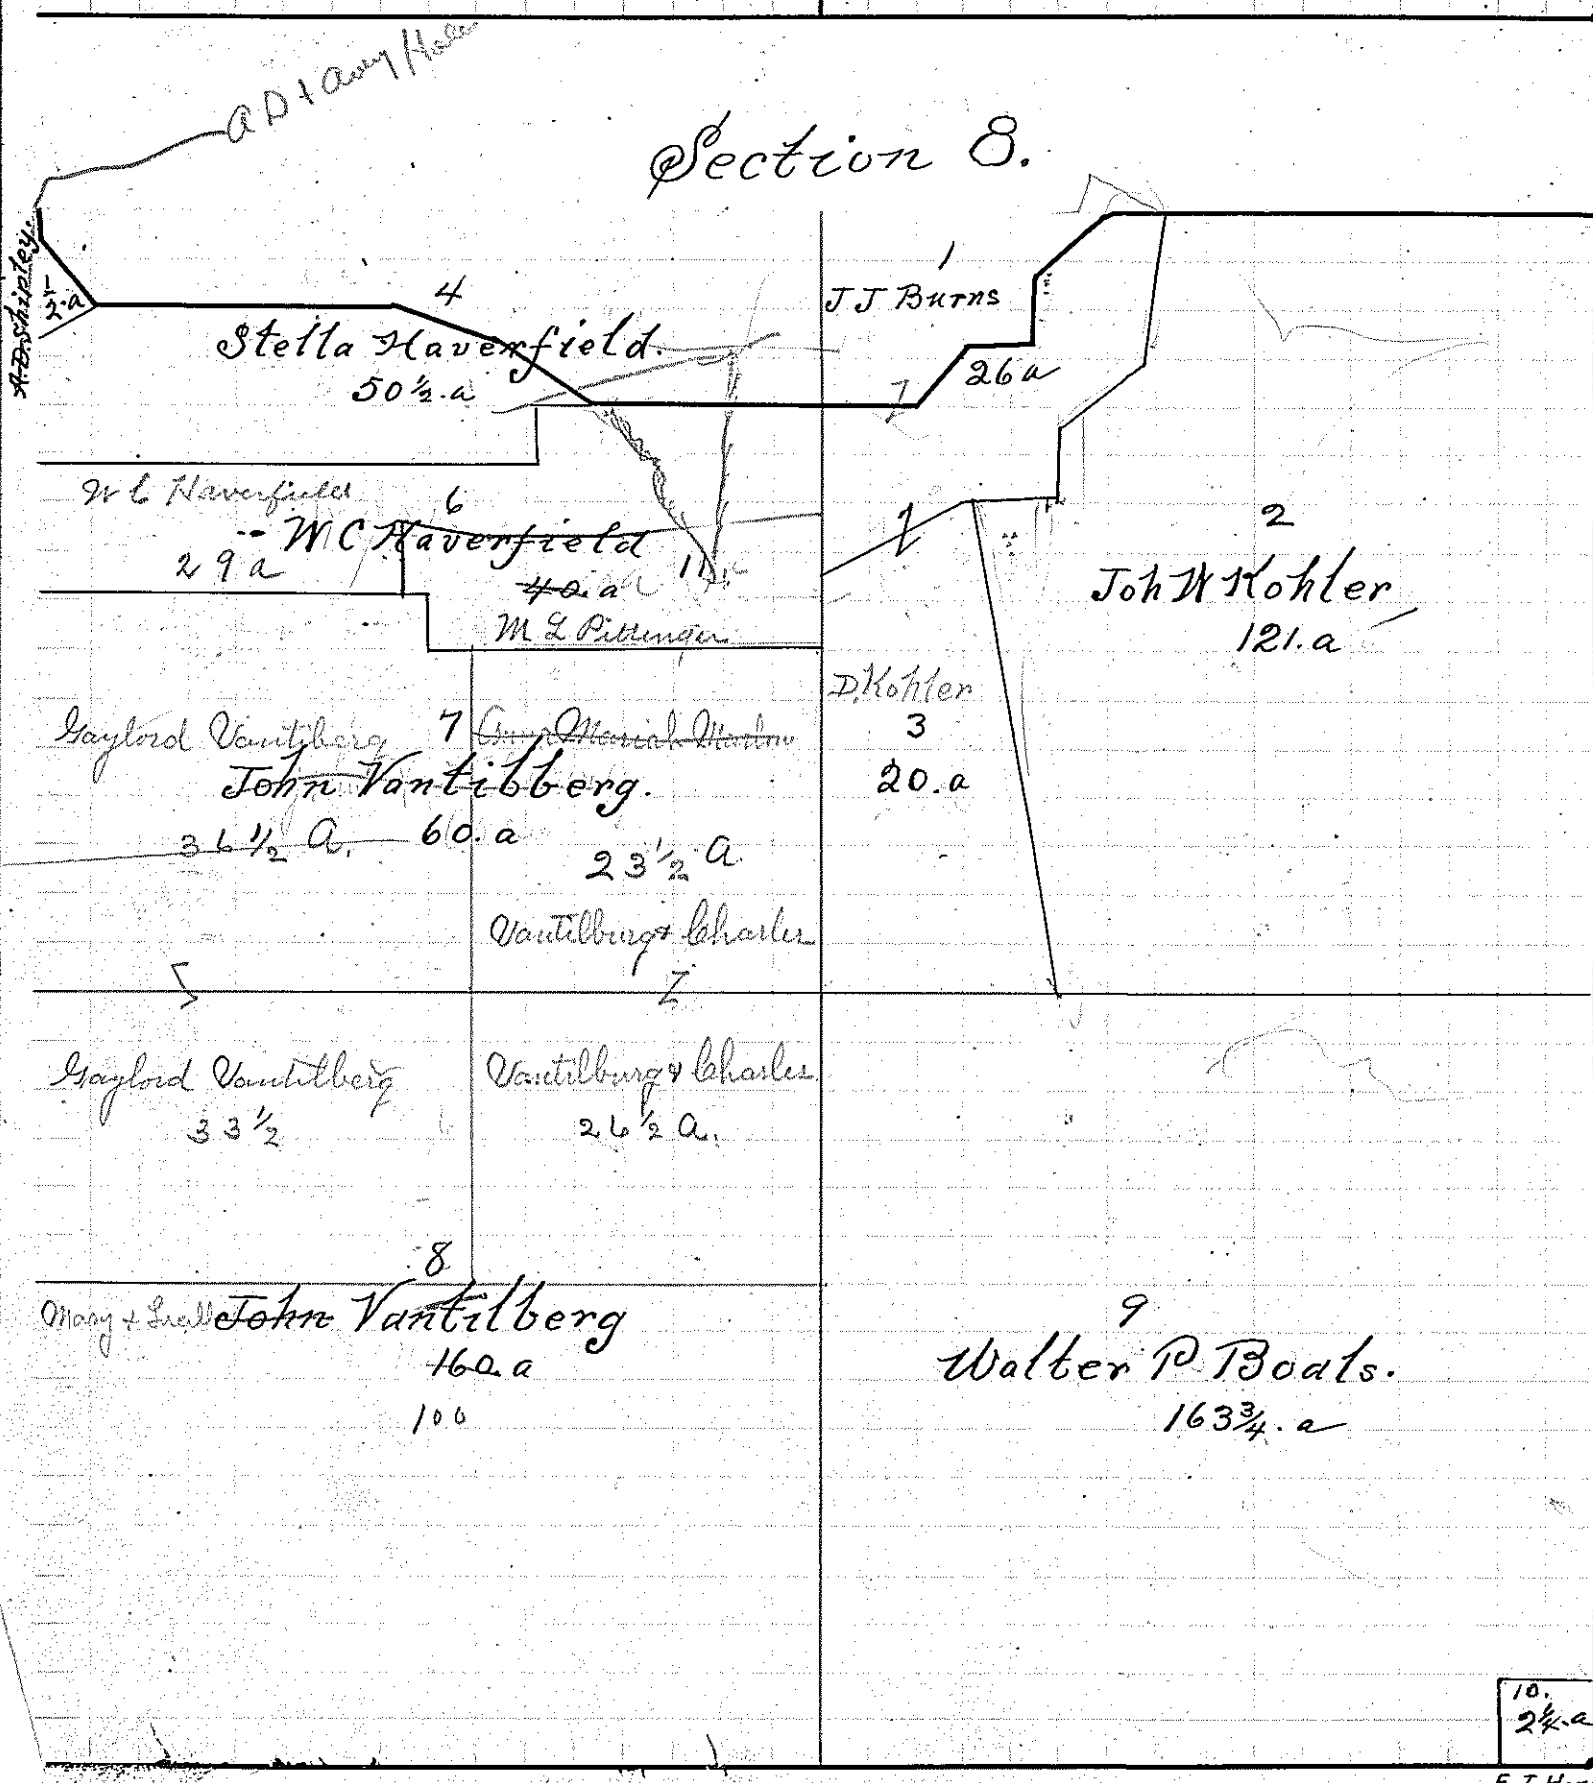 A D & Avery
Section 8.
A.D. Shipley.
1/2.a
4
Stella Haverfield.
50 1/2.a
1
J J Burns
26 a
W C Haverfield
6
W C Haverfield
29 a
40.a
11
M L Pittenger
1
2
Joh W Kohler
121.a
D. Kohler
3
20.a
Gaylord Vantilberg
7
Mariah
John Vantilberg.
36 1/2 A.
60.a
23 1/2 A.
Vantilburg & Charles
Z
Gaylord Vantilberg
33 1/2
Vantilburg & Charles
26 1/2 A.
8
Mary &
John Vantilberg
160.a
100
9
Walter P Boals.
163 3/4.a
10.